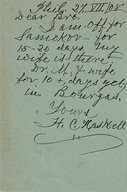 Phil. 27/VIII/08
Dear Bro.
I am off for
Samokov for
15-20 days. My
wife is there.
Dr. M. & wife
for 10 + days yet
in Bourgas.
Yours
H. C. Haskell